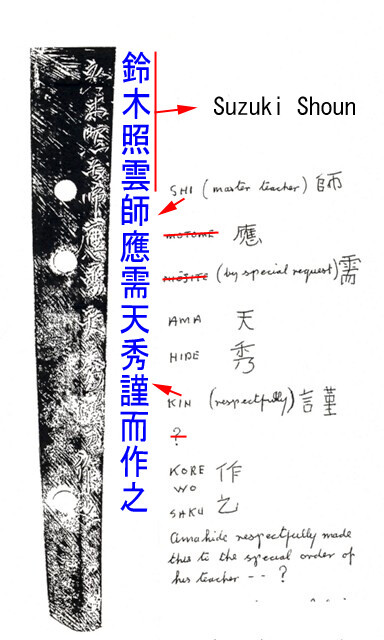 鈴木照雲師應需天秀謹而作之
Suzuki Shoun
SHI (master teacher) 師
MOTOME 應
(by special request) 需
AMA 天
HIDE 秀
KIN (respectfully) 謹
?
KORE 作
WO
SAKU
Amahide respectfully made
this to the special order of
his teacher -- ?